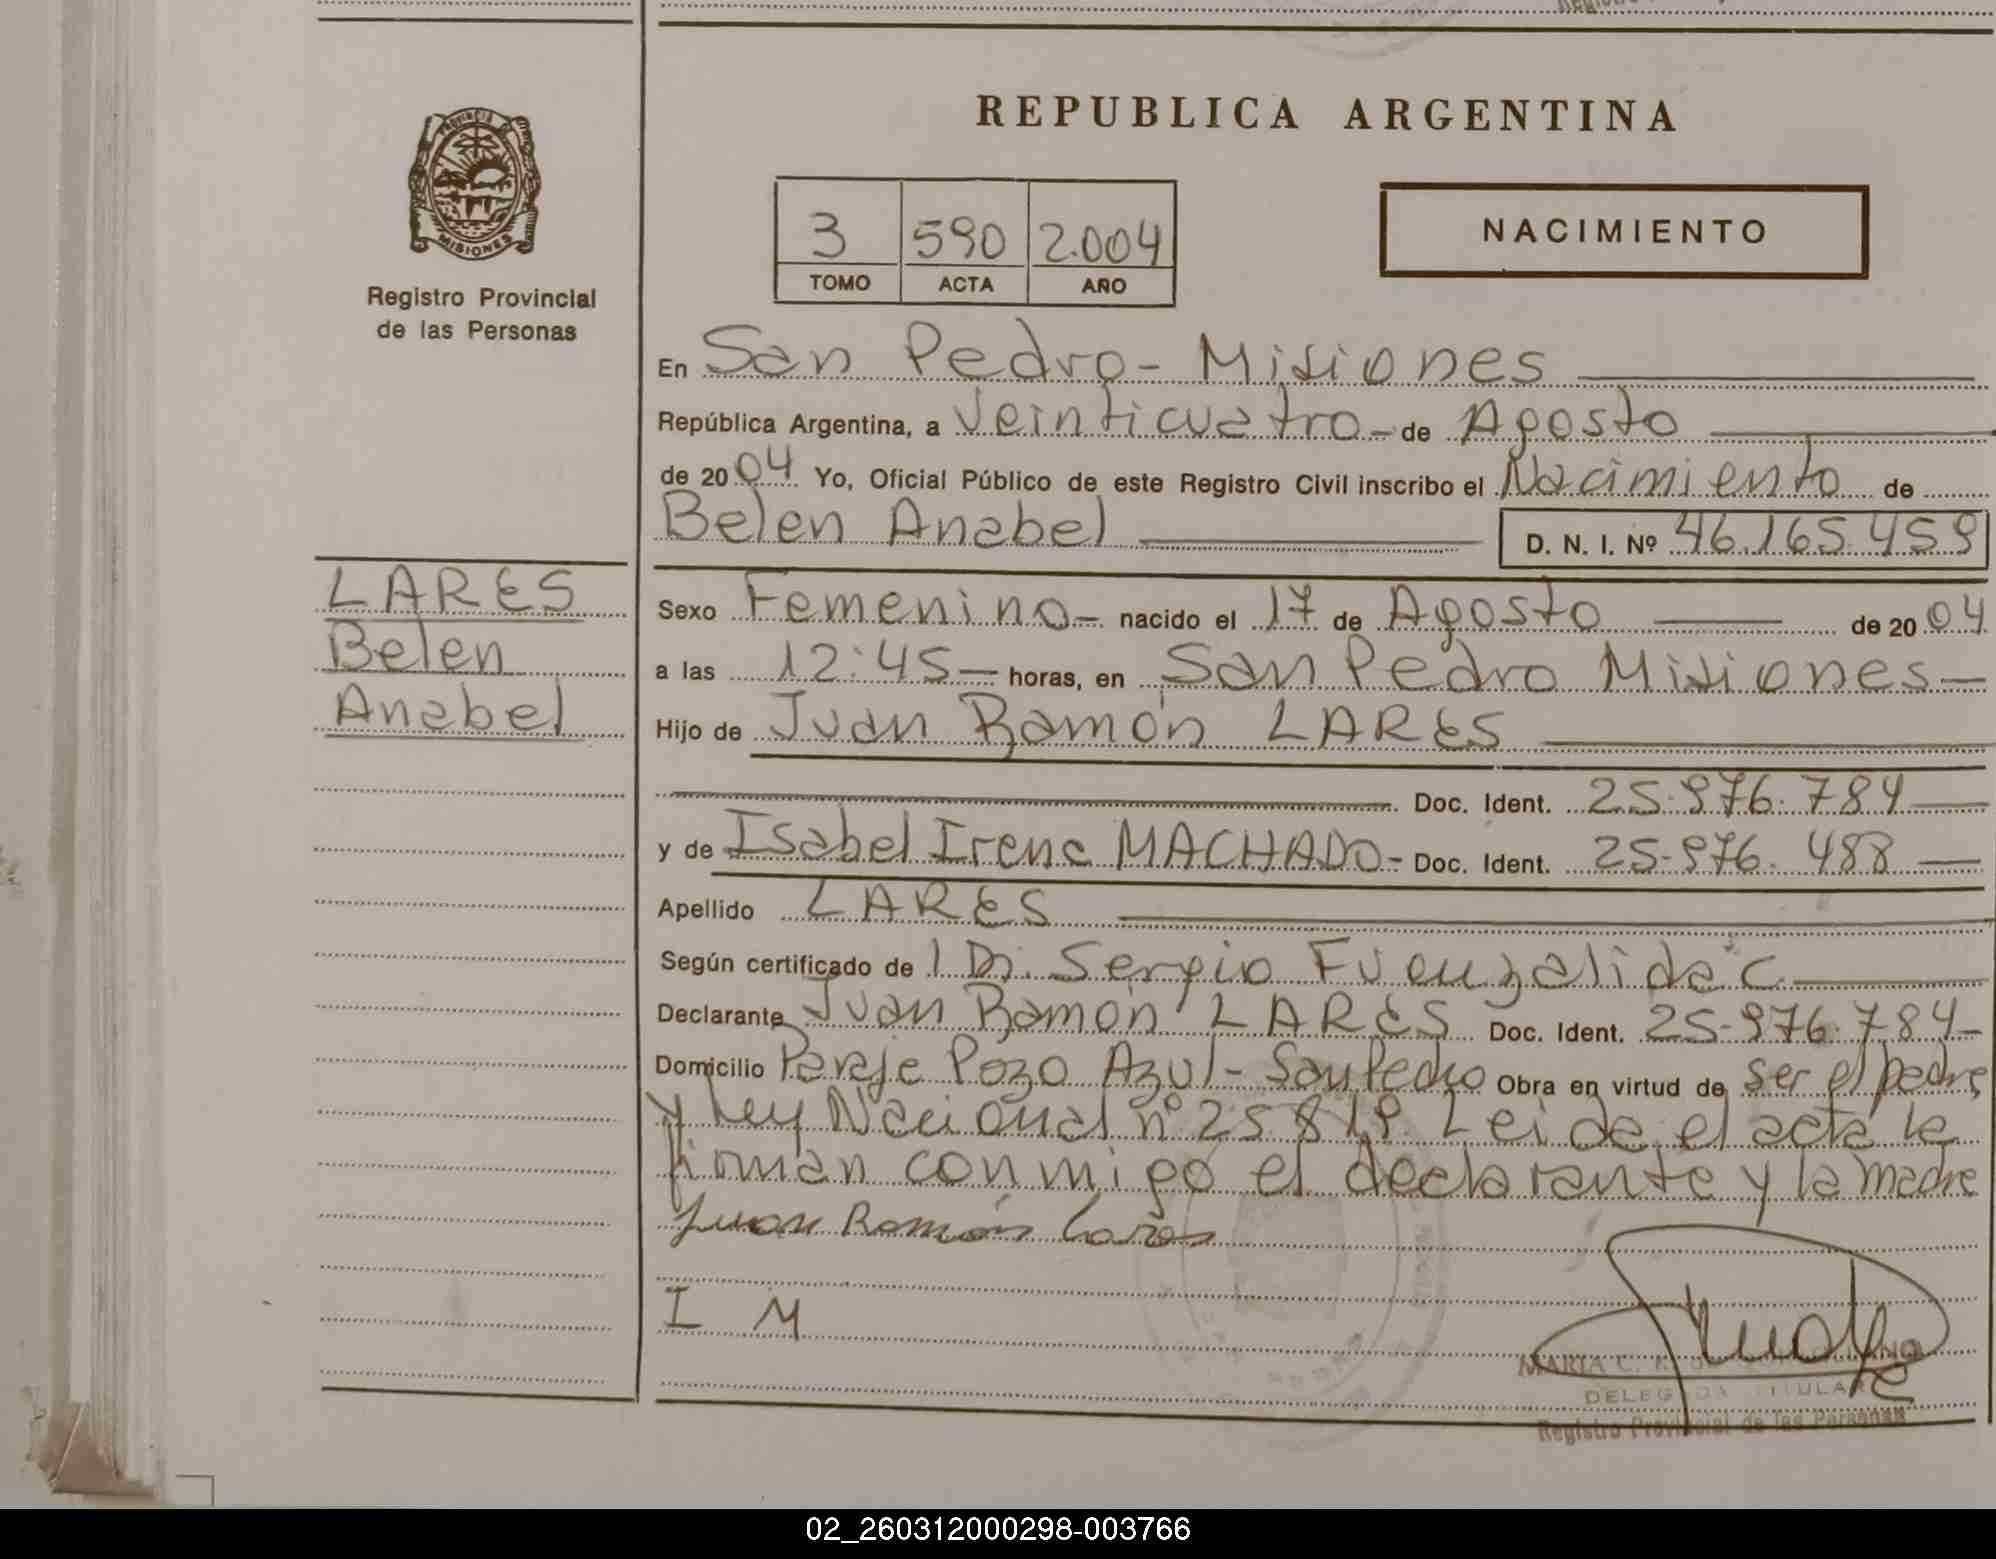 REPUBLICA ARGENTINA
PROVINCIA DE
MISIONES
Registro Provincial
de las Personas
3 590 2.004
TOMO ACTA AÑO
NACIMIENTO
En San Pedro - Misiones
República Argentina, a Veinticuatro - de Agosto
de 2004 Yo, Oficial Público de este Registro Civil inscribo el Nacimiento de
Belen Anabel D. N. I. Nº 46.165.459
LARES
Belen
Anabel
Sexo Femenino - nacido el 17 de Agosto de 2004
a las 12:45 - horas, en San Pedro Misiones -
Hijo de Juan Ramón LARES
Doc. Ident. 25.976.784
y de Isabel Irene MACHADO - Doc. Ident. 25.976.488
Apellido LARES
Según certificado de Sergio Fuenzalida C.
Declarante Juan Ramón LARES Doc. Ident. 25.976.784
Domicilio Paraje Pozo Azul - San Pedro Obra en virtud de ser el padre
y Ley Nacional nº 25.819. Leida el acta la
firman conmigo el declarante y la madre
Juan Ramón Lares
I M
MARIA C.
DELEGADA TITULAR
Registro Provincial de las Personas
02_260312000298-003766